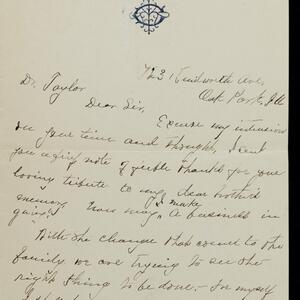 723 Kenilworth Ave,
Oak Park, Ill
Dr. Taylor
Dear Sir,
Excuse my intrusion
on your time and thought, I sent
you a brief note of thanks for your
loving tribute to my dear brother's
memory. Now may I make a business in
With the change that came to the
family we are trying to see the
right thing to be done. - For myself